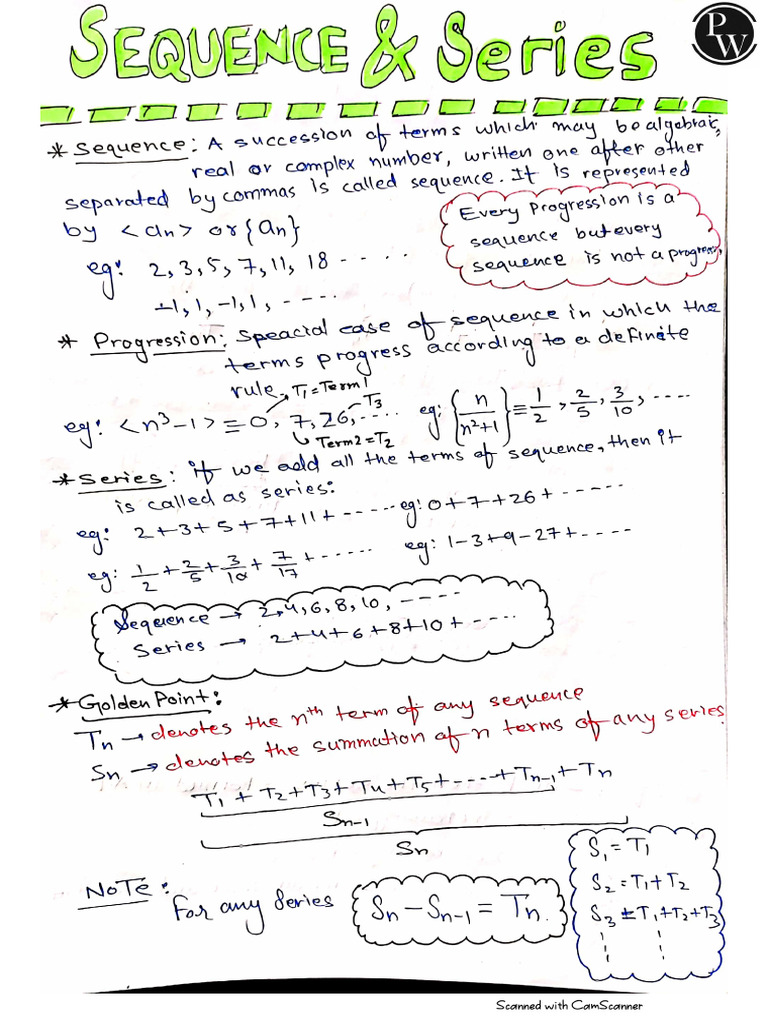 SEQUENCE & Series
PW
* Sequence: A succession of terms which may be algebraic,
real or complex number, written one after other
separated by commas is called sequence. It is represented
by <an> or {an}
Every Progression is a
sequence but every
sequence is not a progress
eg: 2, 3, 5, 7, 11, 18 - - - - .
-1, 1, -1, 1, - - - -
* Progression: Speacial case of sequence in which the
terms progress according to a definite
rule.
T1 = Term 1
T3
eg: <n³-1> = 0, 7, 26, - - - -
Term 2 = T2
eg: {n/n²+1} ≡ 1/2, 2/5, 3/10, - - - -
* Series: if we add all the terms of sequence, then it
is called as series:
eg: 2+3+5+7+11+ - - - - -
eg: 0+7+26+ - - - - -
eg: 1/2 + 2/5 + 3/10 + 7/17 + - - - - -
eg: 1-3+9-27+ - - - -
Sequence → 2,4,6,8,10, - - - -
Series → 2+4+6+8+10+ - - - -
* Golden Point:
Tn → denotes the nth term of any sequence
Sn → denotes the summation of n terms of any series.
T1 + T2 + T3 + T4 + T5 + - - - - + Tn-1 + Tn
Sn-1
Sn
NOTE: For any Series
Sn - Sn-1 = Tn.
S1 = T1
S2 = T1+T2
S3 = T1+T2+T3
Scanned with CamScanner